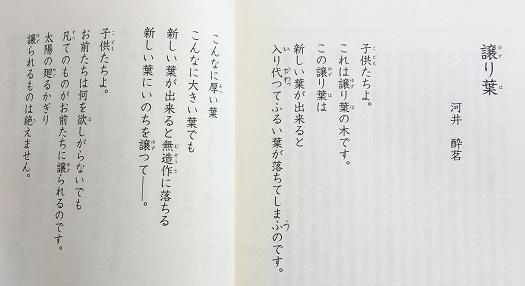 譲り葉
河井 酔茗
子供たちよ。
これは譲り葉の木です。
この譲り葉は
新しい葉が出来ると
入り代つてふるい葉が落ちてしまふのです。
こんなに厚い葉
こんなに大きい葉でも
新しい葉が出来ると無造作に落ちる
新しい葉にいのちを譲つて――。
子供たちよ。
お前たちは何を欲しがらないでも
凡てのものがお前たちに譲られるのです。
太陽の廻るかぎり
譲られるものは絶えません。